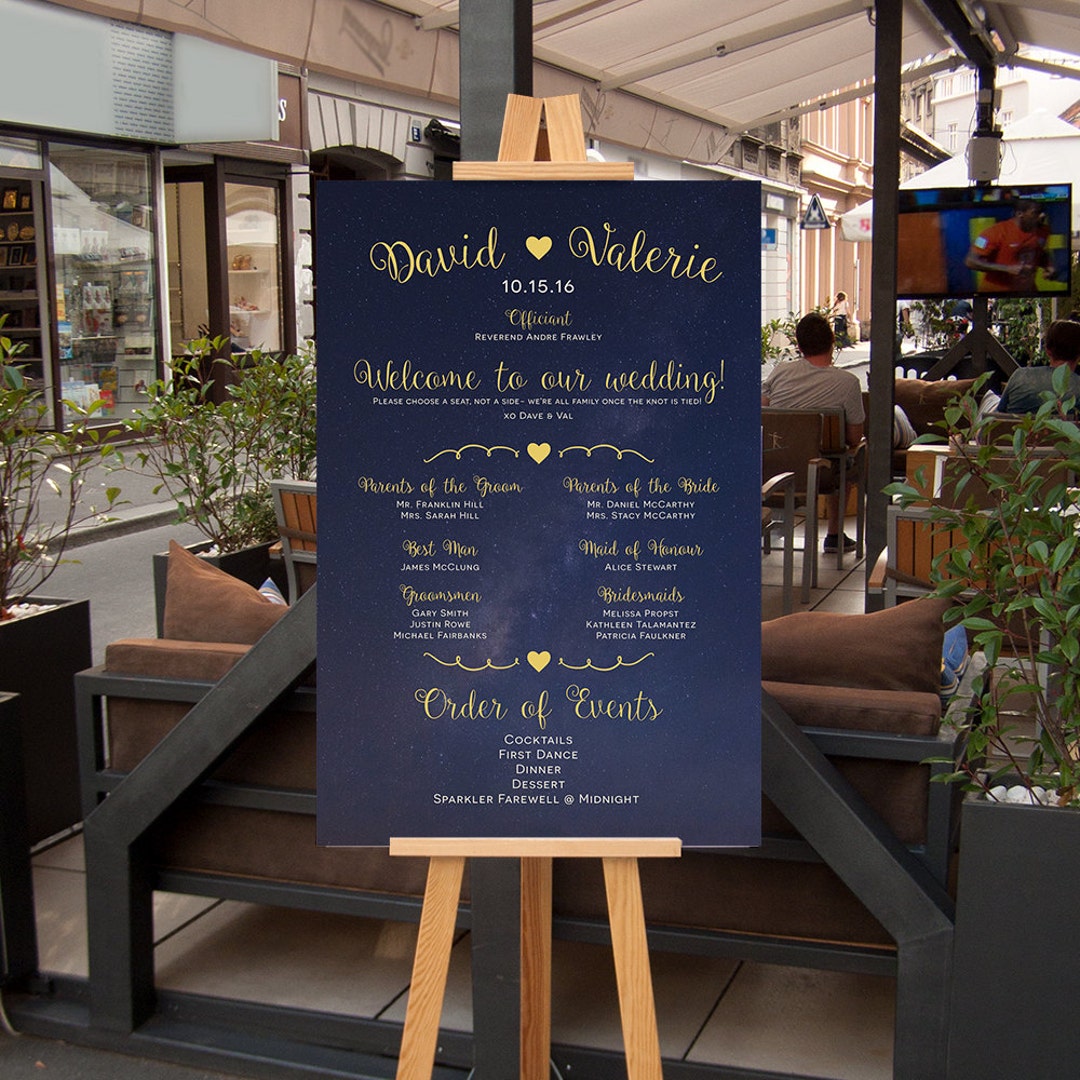 David ♥ Valerie
10.15.16
Officiant
Reverend Andre Frawley
Welcome to our wedding!
Please choose a seat, not a side- we're all family once the knot is tied!
xo Dave & Val
Parents of the Groom
Mr. Franklin Hill
Mrs. Sarah Hill
Parents of the Bride
Mr. Daniel McCarthy
Mrs. Stacy McCarthy
Best Man
James McClung
Maid of Honour
Alice Stewart
Groomsmen
Gary Smith
Justin Rowe
Michael Fairbanks
Bridesmaids
Melissa Propst
Kathleen Talamantez
Patricia Faulkner
Order of Events
Cocktails
First Dance
Dinner
Dessert
Sparkler Farewell @ Midnight